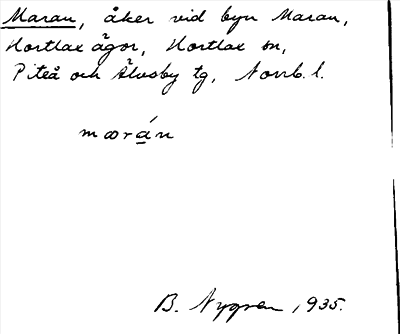 Maran, åker vid byn Maran,
Hortlax ägor, Hortlax sn,
Piteå och Älvsby tg, Norrb. l.
mœrán
B. Nygren, 1935.